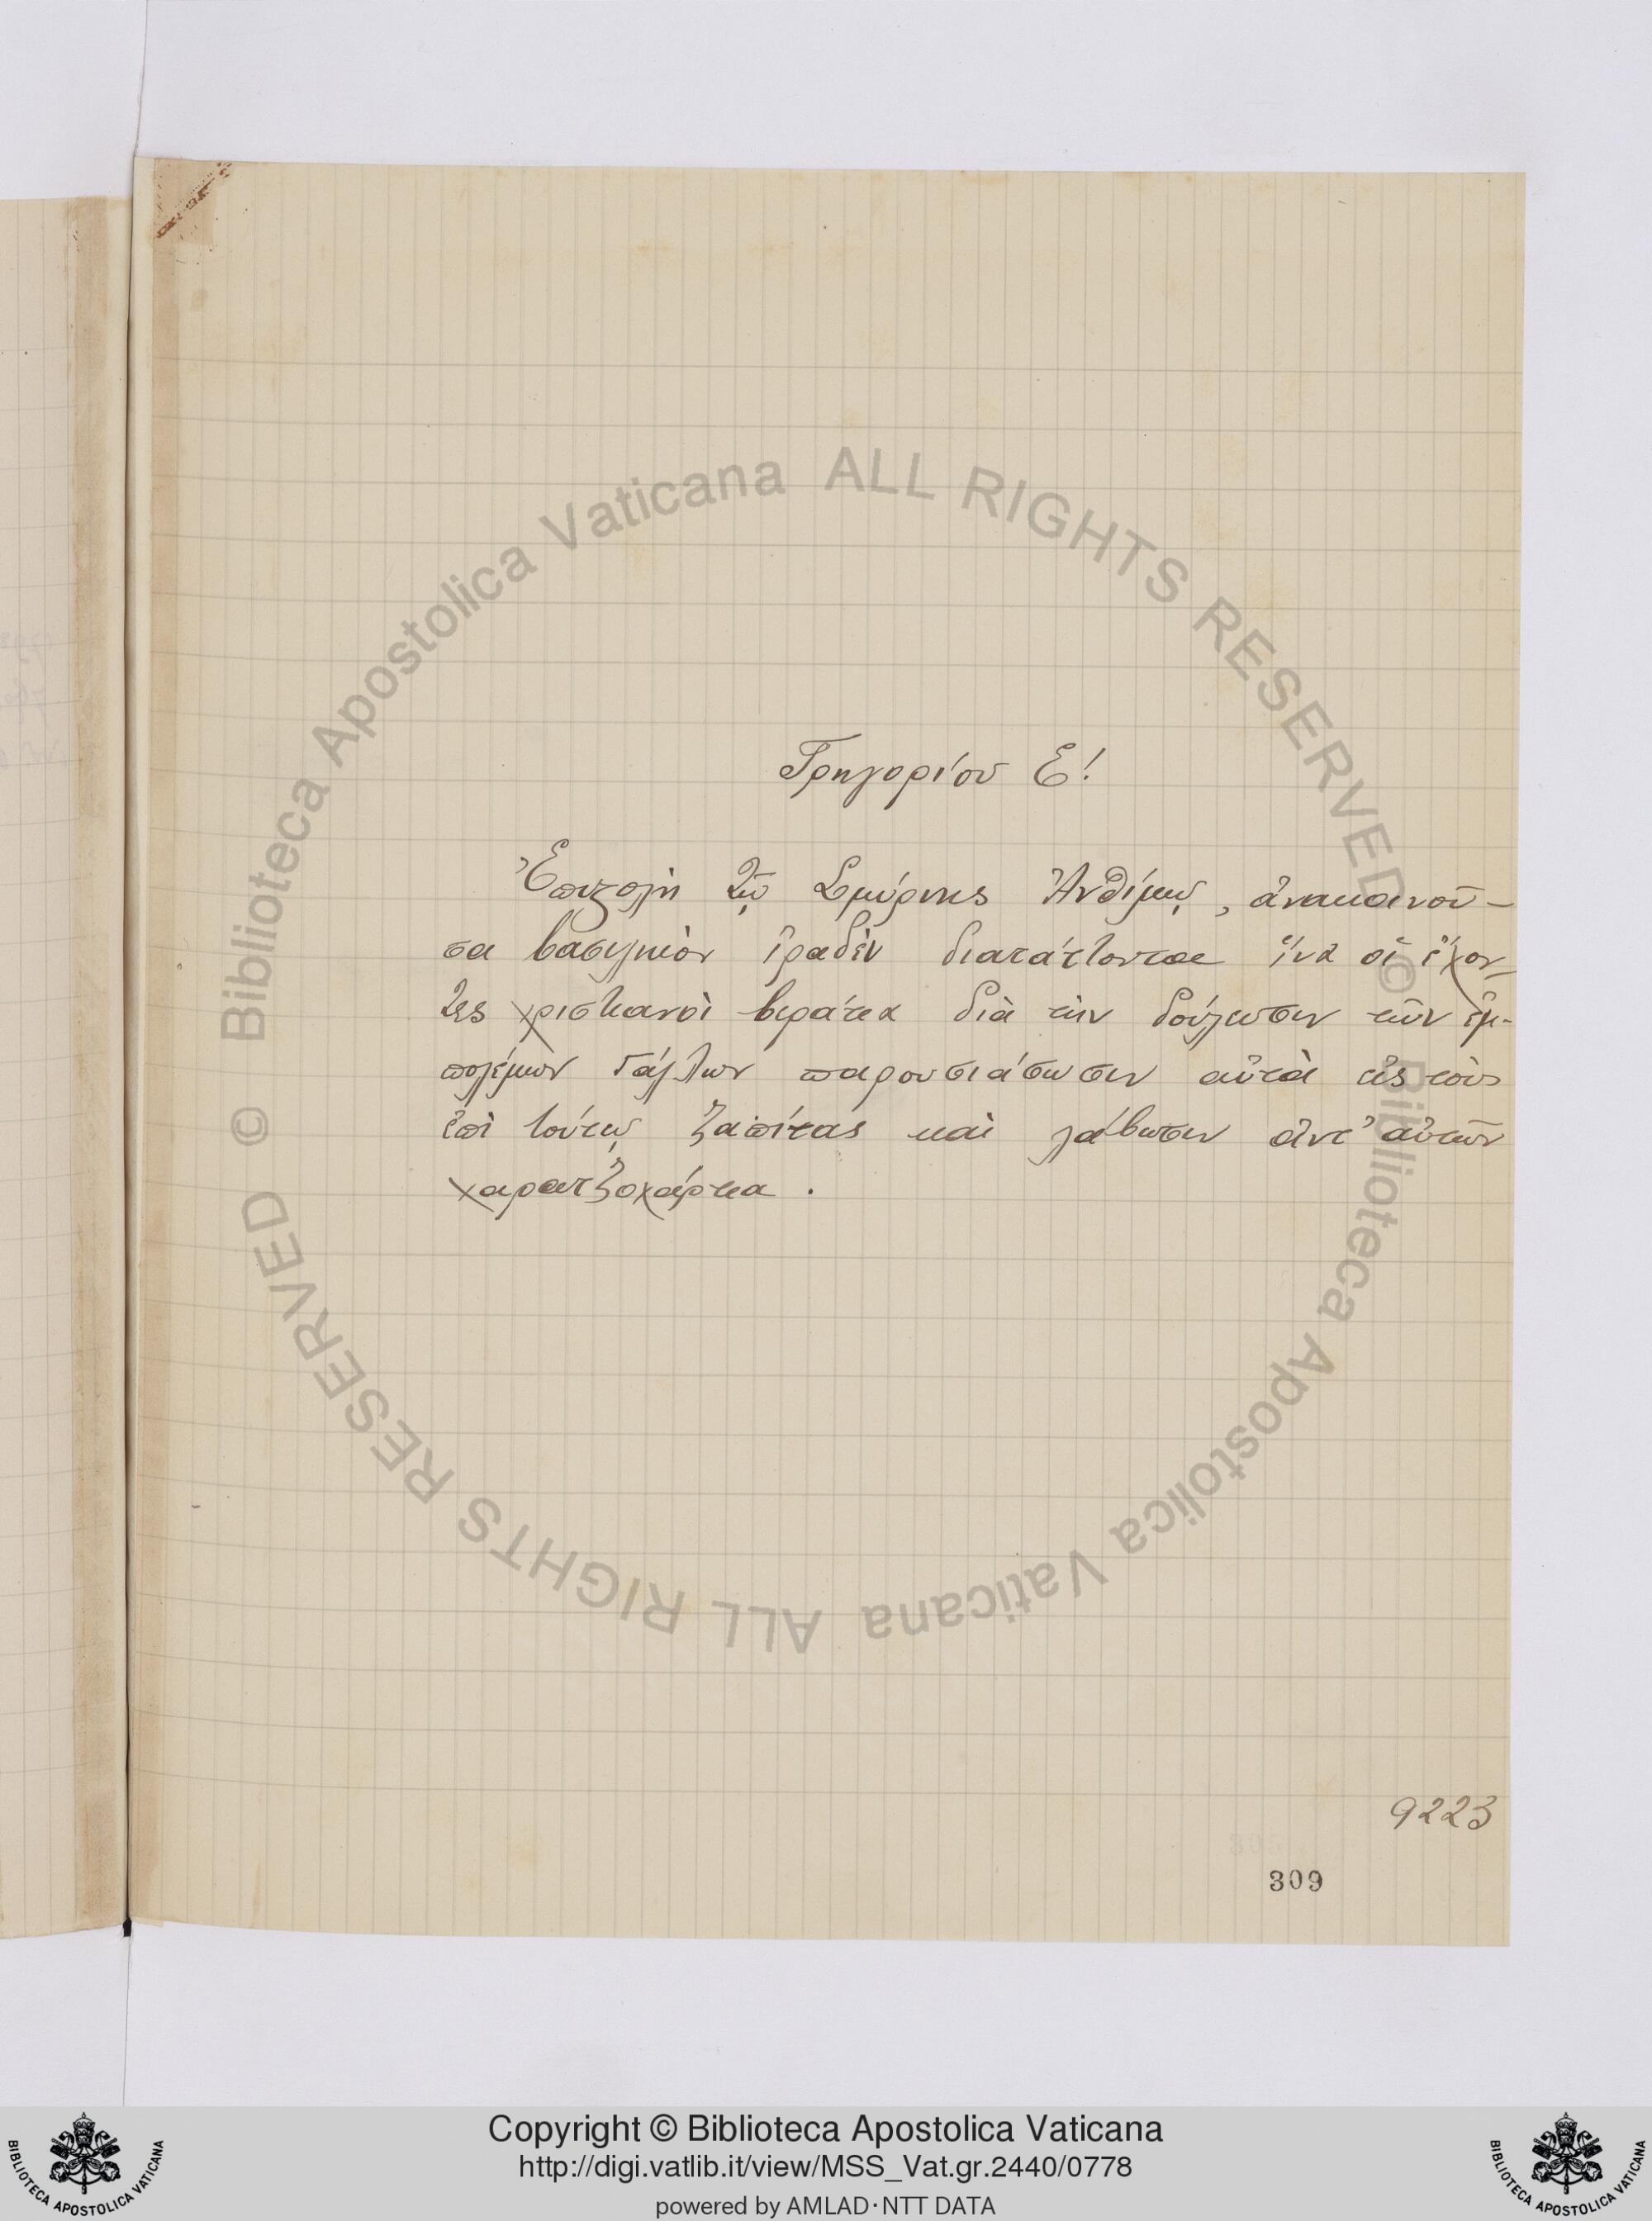 Γρηγορίου Ε!
Ἐπιστολὴ τῷ Σμύρνης Ἀνθίμῳ, ἀνακοινοῦ-
σα βασιλικὸν ἰραδὲν διατάττοντα ἵνα οἱ ἔχον-
τες χριστιανοὶ βεράτια διὰ τὴν δούλωσιν τῶν ἐμ-
πολέμων Γάλλων παρουσιάσωσιν αὐτὰ εἰς τοὺς
ἐπὶ τούτῳ ζαπίτας καὶ λάβωσιν ἀντ' αὐτῶν
χαρατζοχάρτια.
9223
309
© Biblioteca Apostolica Vaticana ALL RIGHTS RESERVED
© Biblioteca Apostolica Vaticana ALL RIGHTS RESERVED
BIBLIOTECA APOSTOLICA VATICANA
Copyright © Biblioteca Apostolica Vaticana
http://digi.vatlib.it/view/MSS_Vat.gr.2440/0778
powered by AMLAD·NTT DATA
BIBLIOTECA APOSTOLICA VATICANA